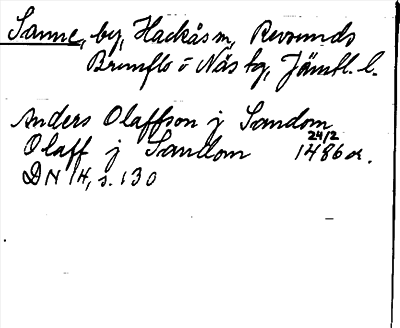 Sanne, by, Hackås sn, Revsunds
Brunflo o Näs tg, Jämtl. l.
Anders Olaffson j Sandom
Olaff j Sandom 24/2 1486 or.
DN 14, s. 130